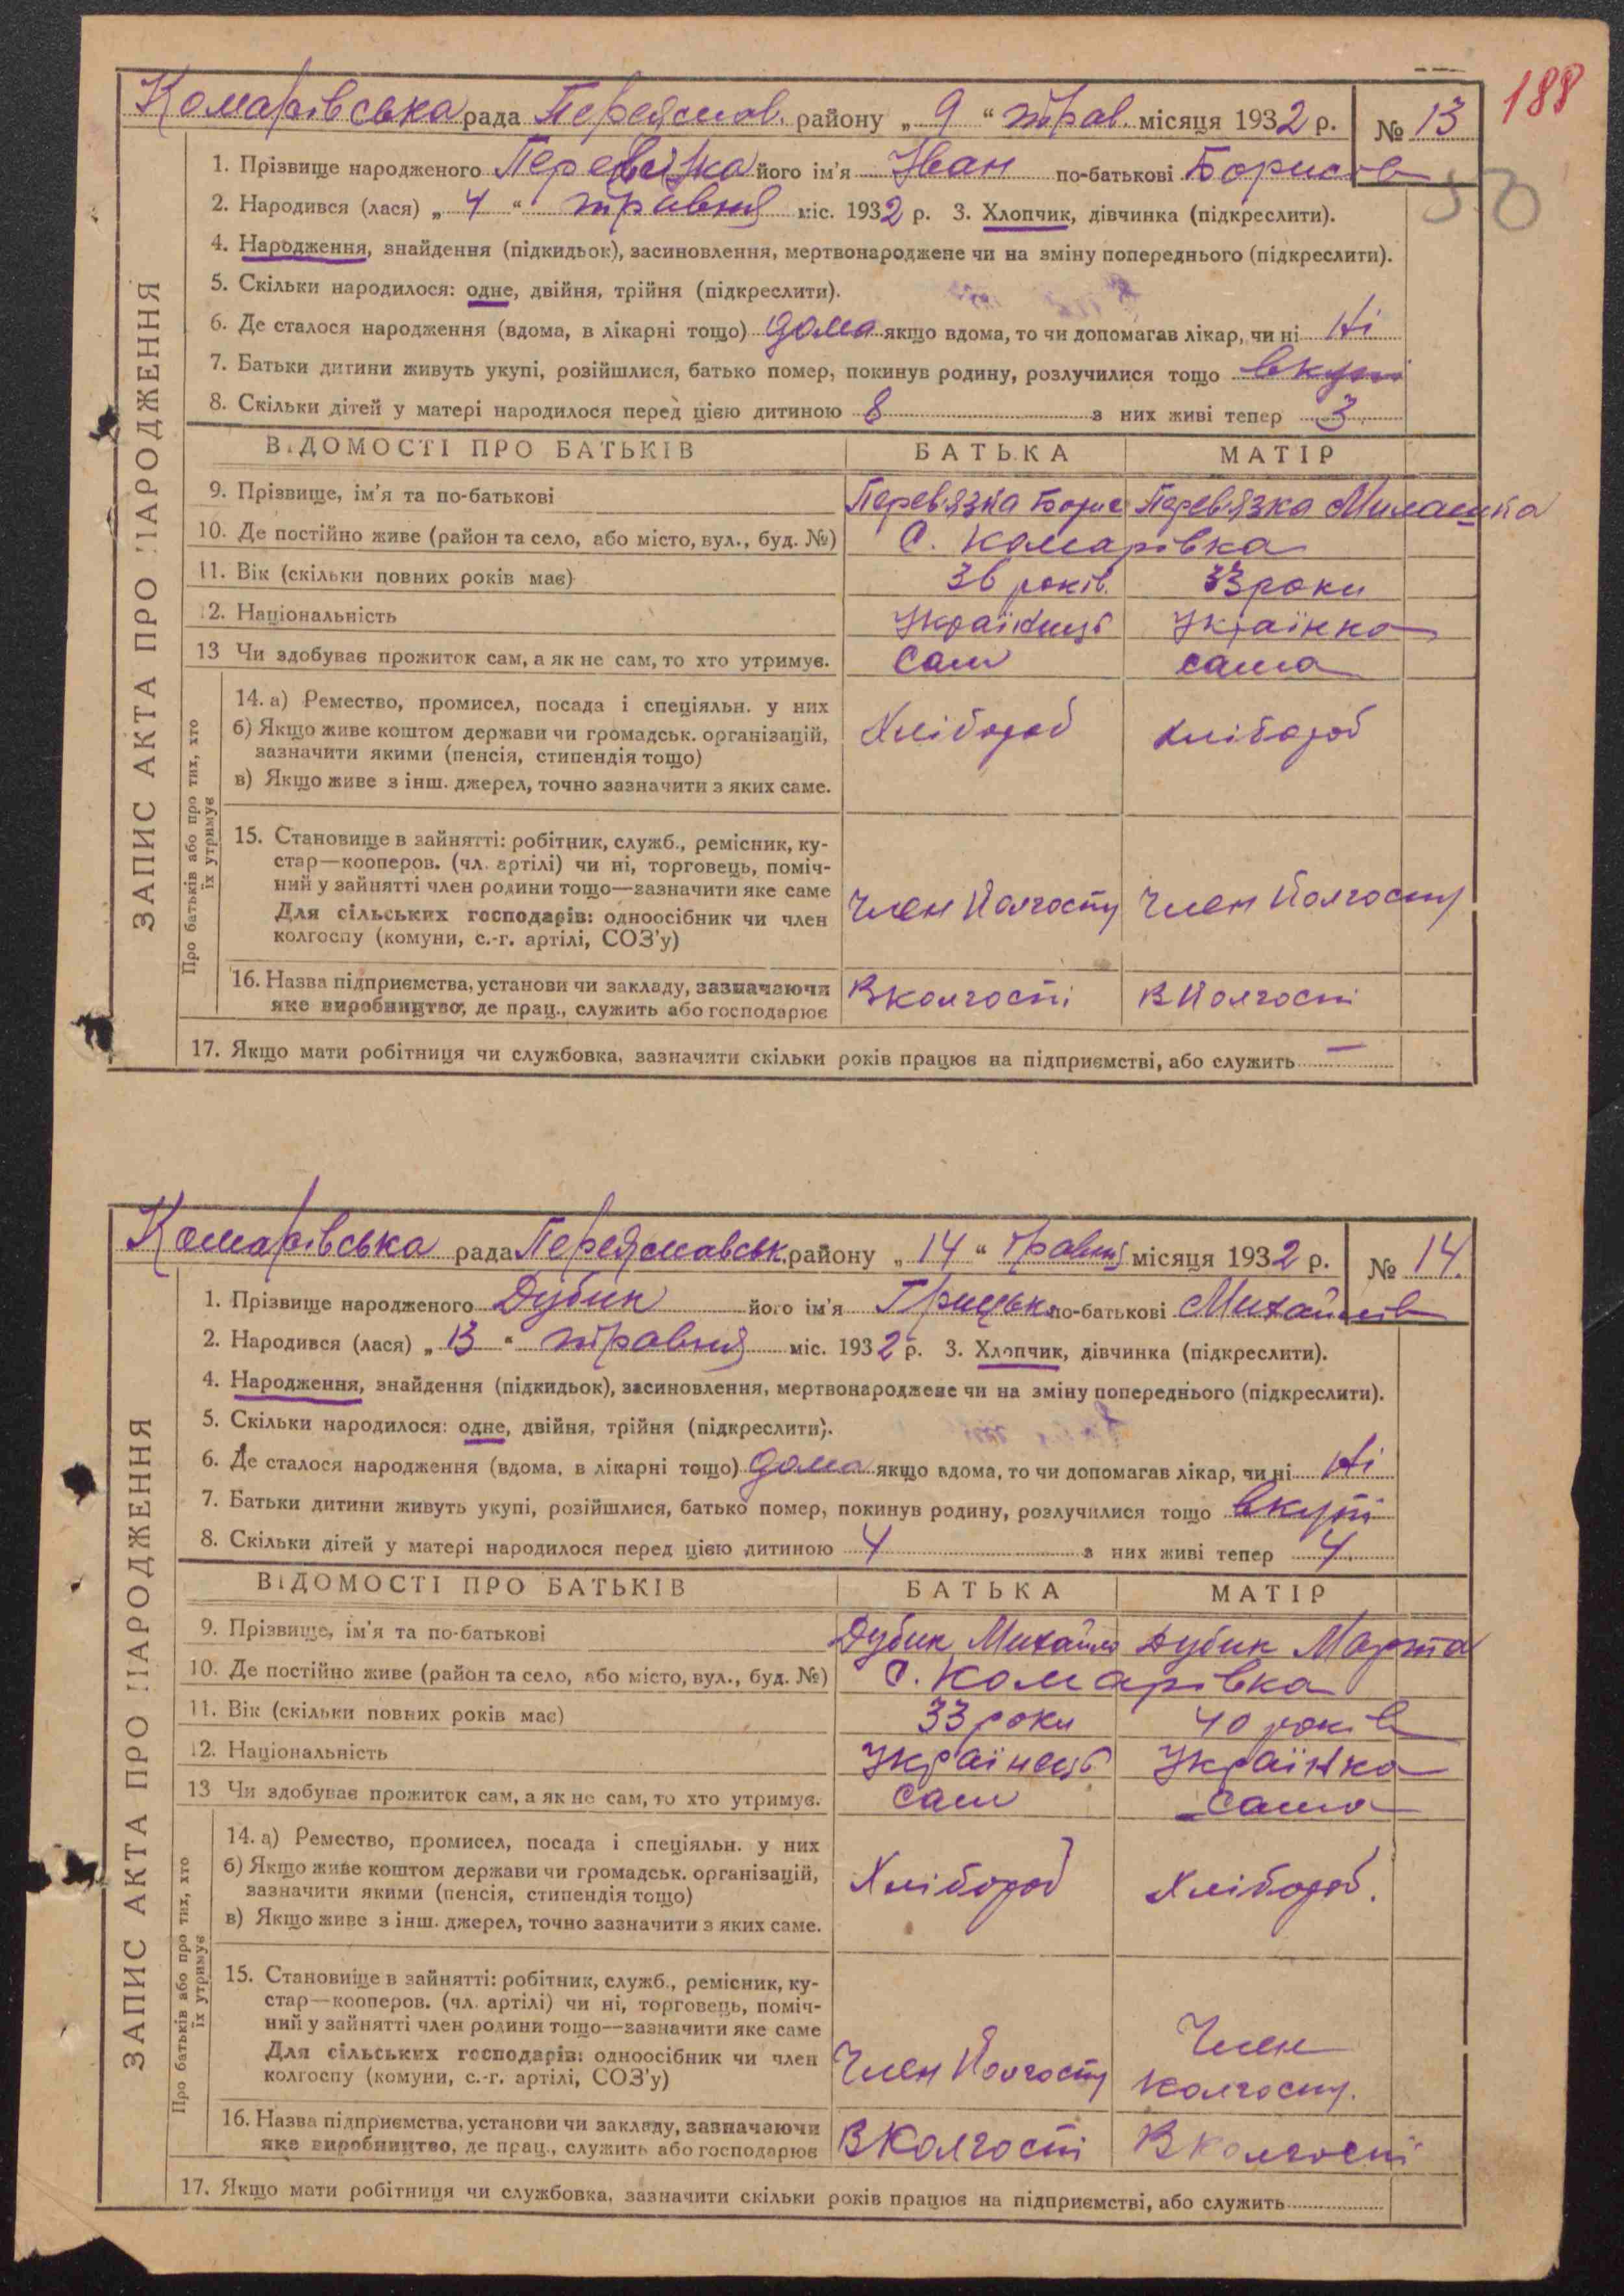 188
50
Комарівська рада Переяслов. району „ 9 “ трав. місяця 1932 р. № 13
1. Прізвище народженого Перевязка його ім'я Іван по-батькові Борисов
2. Народився (лася) „ 4 “ травня міс. 1932 р. 3. Хлопчик, дівчинка (підкреслити).
4. Народження, знайдення (підкидьок), засиновлення, мертвонароджене чи на зміну попереднього (підкреслити).
5. Скільки народилося: одне, двійня, трійня (підкреслити).
6. Де сталося народження (вдома, в лікарні тощо) дома якщо вдома, то чи допомагав лікар, чи ні Ні
7. Батьки дитини живуть укупі, розійшлися, батько помер, покинув родину, розлучилися тощо вкупі
8. Скільки дітей у матері народилося перед цією дитиною 8 з них живі тепер 3
ЗАПИС АКТА ПРО НАРОДЖЕННЯ
ВІДОМОСТІ ПРО БАТЬКІВ БАТЬКА МАТІР
9. Прізвище, ім'я та по-батькові Перев'язка Борис Перев'язка Милашка
10. Де постійно живе (район та село, або місто, вул., буд. №) С. Комарівка
11. Вік (скільки повних років має) 36 років. 33 роки
12. Національність Українець Українка
13 Чи здобуває прожиток сам, а як не сам, то хто утримує. Сам сама
Про батьків або про тих, хто
їх утримує
14. а) Ремество, промисел, посада і спеціяльн. у них
б) Якщо живе коштом держави чи громадськ. організацій,
зазначити якими (пенсія, стипендія тощо)
в) Якщо живе з інш. джерел, точно зазначити з яких саме.
Хлібороб хлібороб
15. Становище в зайнятті: робітник, служб., ремісник, ку-
стар—кооперов. (чл. артілі) чи ні, торговець, поміч-
ний у зайнятті член родини тощо—зазначити яке саме
Для сільських господарів: одноосібник чи член
колгоспу (комуни, с.-г. артілі, СОЗ'у)
Член Колгоспу Член Колгоспу
16. Назва підприємства, установи чи закладу, зазначаючи
яке виробництво, де прац., служить або господарює
В колгоспі В Колгоспі
17. Якщо мати робітниця чи службовка, зазначити скільки років працює на підприємстві, або служить —
Комарівська рада Переяславськ. району „ 14 “ травня місяця 1932 р. № 14.
1. Прізвище народженого Дубик його ім'я Грицько по-батькові Михайлів
2. Народився (лася) „ 13 “ травня міс. 1932 р. 3. Хлопчик, дівчинка (підкреслити).
4. Народження, знайдення (підкидьок), засиновлення, мертвонароджене чи на зміну попереднього (підкреслити).
5. Скільки народилося: одне, двійня, трійня (підкреслити).
6. Де сталося народження (вдома, в лікарні тощо) дома якщо вдома, то чи допомагав лікар, чи ні Ні
7. Батьки дитини живуть укупі, розійшлися, батько помер, покинув родину, розлучилися тощо вкупі
8. Скільки дітей у матері народилося перед цією дитиною 4 з них живі тепер 4.
ЗАПИС АКТА ПРО НАРОДЖЕННЯ
ВІДОМОСТІ ПРО БАТЬКІВ БАТЬКА МАТІР
9. Прізвище, ім'я та по-батькові Дубик Михайло Дубик Марта
10. Де постійно живе (район та село, або місто, вул., буд. №) С. Комарівка
11. Вік (скільки повних років має) 33 роки 40 років
12. Національність Українець Українка
13 Чи здобуває прожиток сам, а як не сам, то хто утримує. Сам Сама
Про батьків або про тих, хто
їх утримує
14. а) Ремество, промисел, посада і спеціяльн. у них
б) Якщо живе коштом держави чи громадськ. організацій,
зазначити якими (пенсія, стипендія тощо)
в) Якщо живе з інш. джерел, точно зазначити з яких саме.
Хлібороб Хлібороб.
15. Становище в зайнятті: робітник, служб., ремісник, ку-
стар—кооперов. (чл. артілі) чи ні, торговець, поміч-
ний у зайнятті член родини тощо—зазначити яке саме
Для сільських господарів: одноосібник чи член
колгоспу (комуни, с.-г. артілі, СОЗ'у)
Член Колгоспу Член
колгоспу.
16. Назва підприємства, установи чи закладу, зазначаючи
яке виробництво, де прац., служить або господарює
В Колгоспі В колгоспі
17. Якщо мати робітниця чи службовка, зазначити скільки років працює на підприємстві, або служить